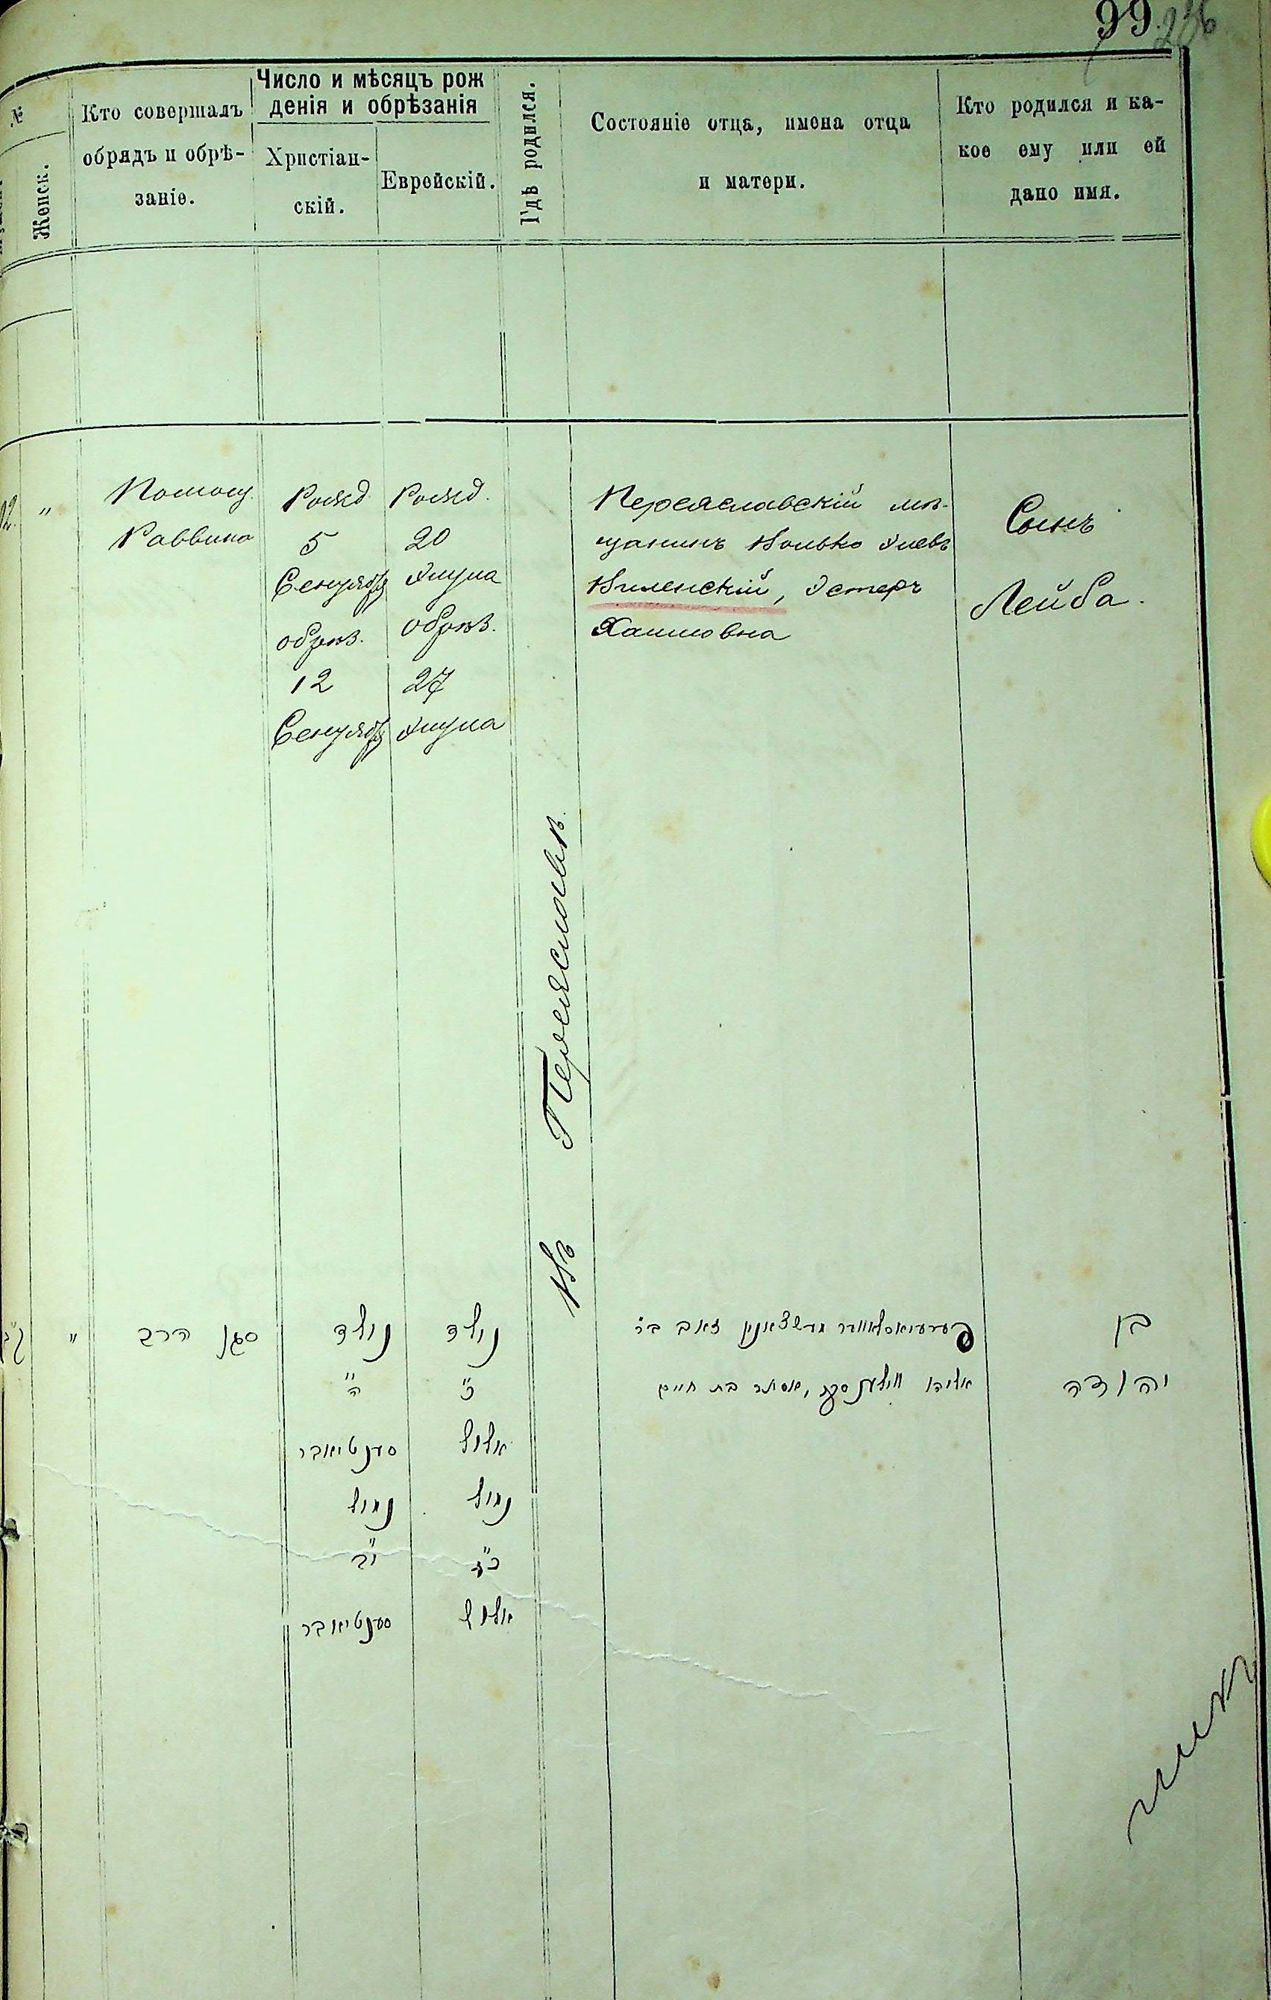 99
№
Женск.
Кто совершалъ
обрядъ и обрѣ-
заніе.
Число и мѣсяцъ рож
денія и обрѣзанія
Христіан-
скій.
Еврейскій.
Гдѣ родился.
Состояніе отца, имена отца
и матери.
Кто родился и ка-
кое ему или ей
дано имя.
"
Помощ.
Раввина
Рожд
5
Сентября
обрѣз.
12
Сентября
Рожд.
20
Элула
обрѣз.
27
Элула
Въ Переяславѣ.
Переяславскій мѣ-
щанинъ Волько Элевъ
Виленскій, Эстеръ
Хаимовна
Сынъ
Лейба.
"
סגן הרב
נולד
ה"
סענטיאבר
נמול
י"ב
סענטיאבר
נולד
כ"
אלול
נמול
כ"ז
אלול
פערעיאסלאווער מעשצאנין זאב בר
אליהו ווילענסקי, אסתר בת חיים
בן
יהודה